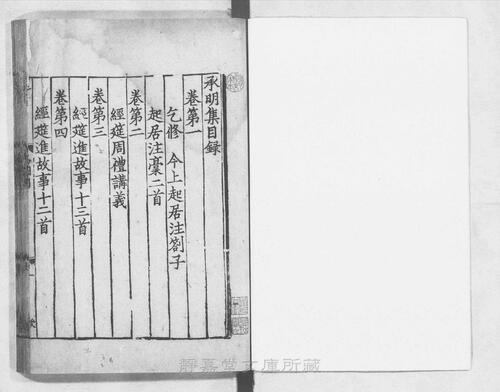 承明集目録
卷第一
乞修 今上起居注劄子
起居注藁二首
卷第二
經筵周禮講義
卷第三
經筵進故事十三首
卷第四
經筵進故事十二首
静嘉堂文庫所藏